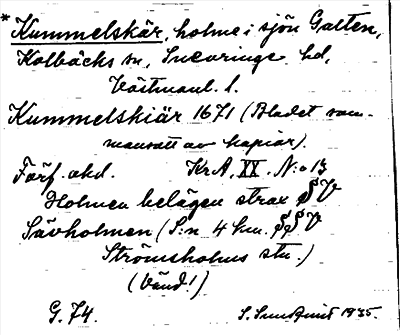 *Kummelskär, holme i sjön Galten,
Kolbäcks sn, Snevringe hd,
Västmanl. l.
Kummelskiär 1671 (Bladet sam-
mansatt av kopior).
Förf. okd. KrA, XX. N:o 13
Holmen belägen strax SV
Sävholmen (S:n 4 km. SSV
Strömsholms stn.)
(Vänd!)
G. 74. S. Sundquist 1935.